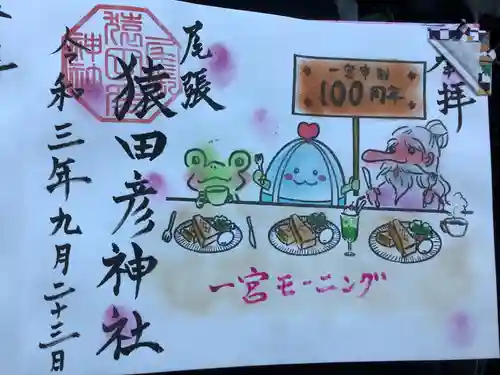 奉拝
一宮市制
100周年
尾張
猿田彦神社
令和三年九月二十三日
一宮モーニング